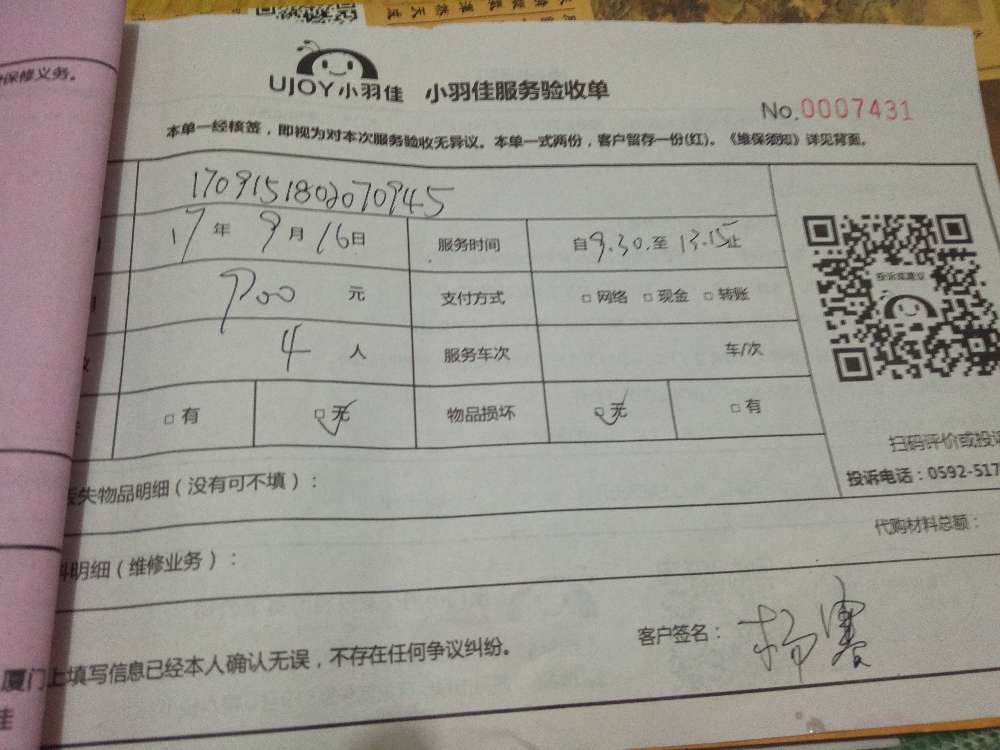 保修义务。
UJOY小羽佳 小羽佳服务验收单
No.0007431
本单一经核签，即视为对本次服务验收无异议。本单一式两份，客户留存一份(红)。《维保须知》详见背面。
1709151802070945
17年9月16日 服务时间 自9.30.至13.15止
900元 支付方式 □网络 □现金 □转账
4人 服务车次 车/次
□有 □无 物品损坏 □无 □有
投诉或建议
扫码评价或投诉
投诉电话：0592-517
失物品明细（没有可不填）：
代购材料总额：
明细（维修业务）：
客户签名：杨
厦门上填写信息已经本人确认无误，不存在任何争议纠纷。
佳